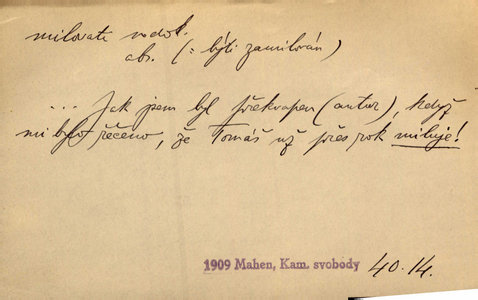 milovati nedok.
abs. (: býti zamilován)
... Jak jsem byl překvapen (autor), když
mi bylo řečeno, že Tomáš už přes rok miluje!
1909 Mahen, Kam. svobody 40.14.